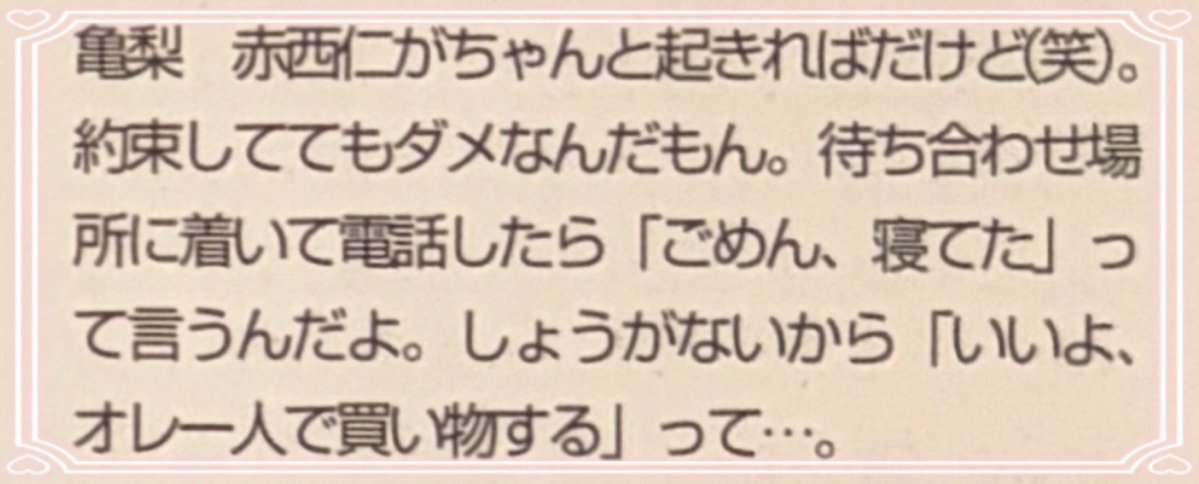 亀梨　赤西仁がちゃんと起きればだけど(笑)。
約束しててもダメなんだもん。待ち合わせ場
所に着いて電話したら「ごめん、寝てた」っ
て言うんだよ。しょうがないから「いいよ、
オレ一人で買い物する」って…。